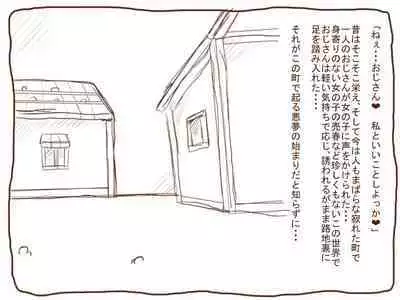 「ねぇ・・・おじさん❤　私といいことしよっか❤」
昔はそこそこ栄え、そして今は人もまばらな寂れた町で
一人のおじさんが女の子に声をかけられた・・・
身寄りのない女の子の売春など珍しくもないこの世界で
おじさんは軽い気持ちで応じ、誘われるがまま路地裏に
足を踏み入れた・・・・
それがこの町で起る悪夢の始まりだと知らずに・・・